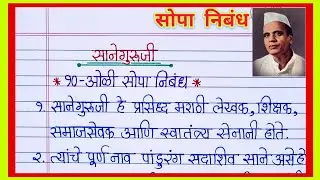 सोपा निबंध
सानेगुरूजी
* १०-ओळी सोपा निबंध *
१. सानेगुरूजी हे प्रसिद्ध मराठी लेखक, शिक्षक,
समाजसेवक आणि स्वातंत्र्य सेनानी होते.
२. त्यांचे पूर्ण नाव पांडुरंग सदाशिव साने असे हो